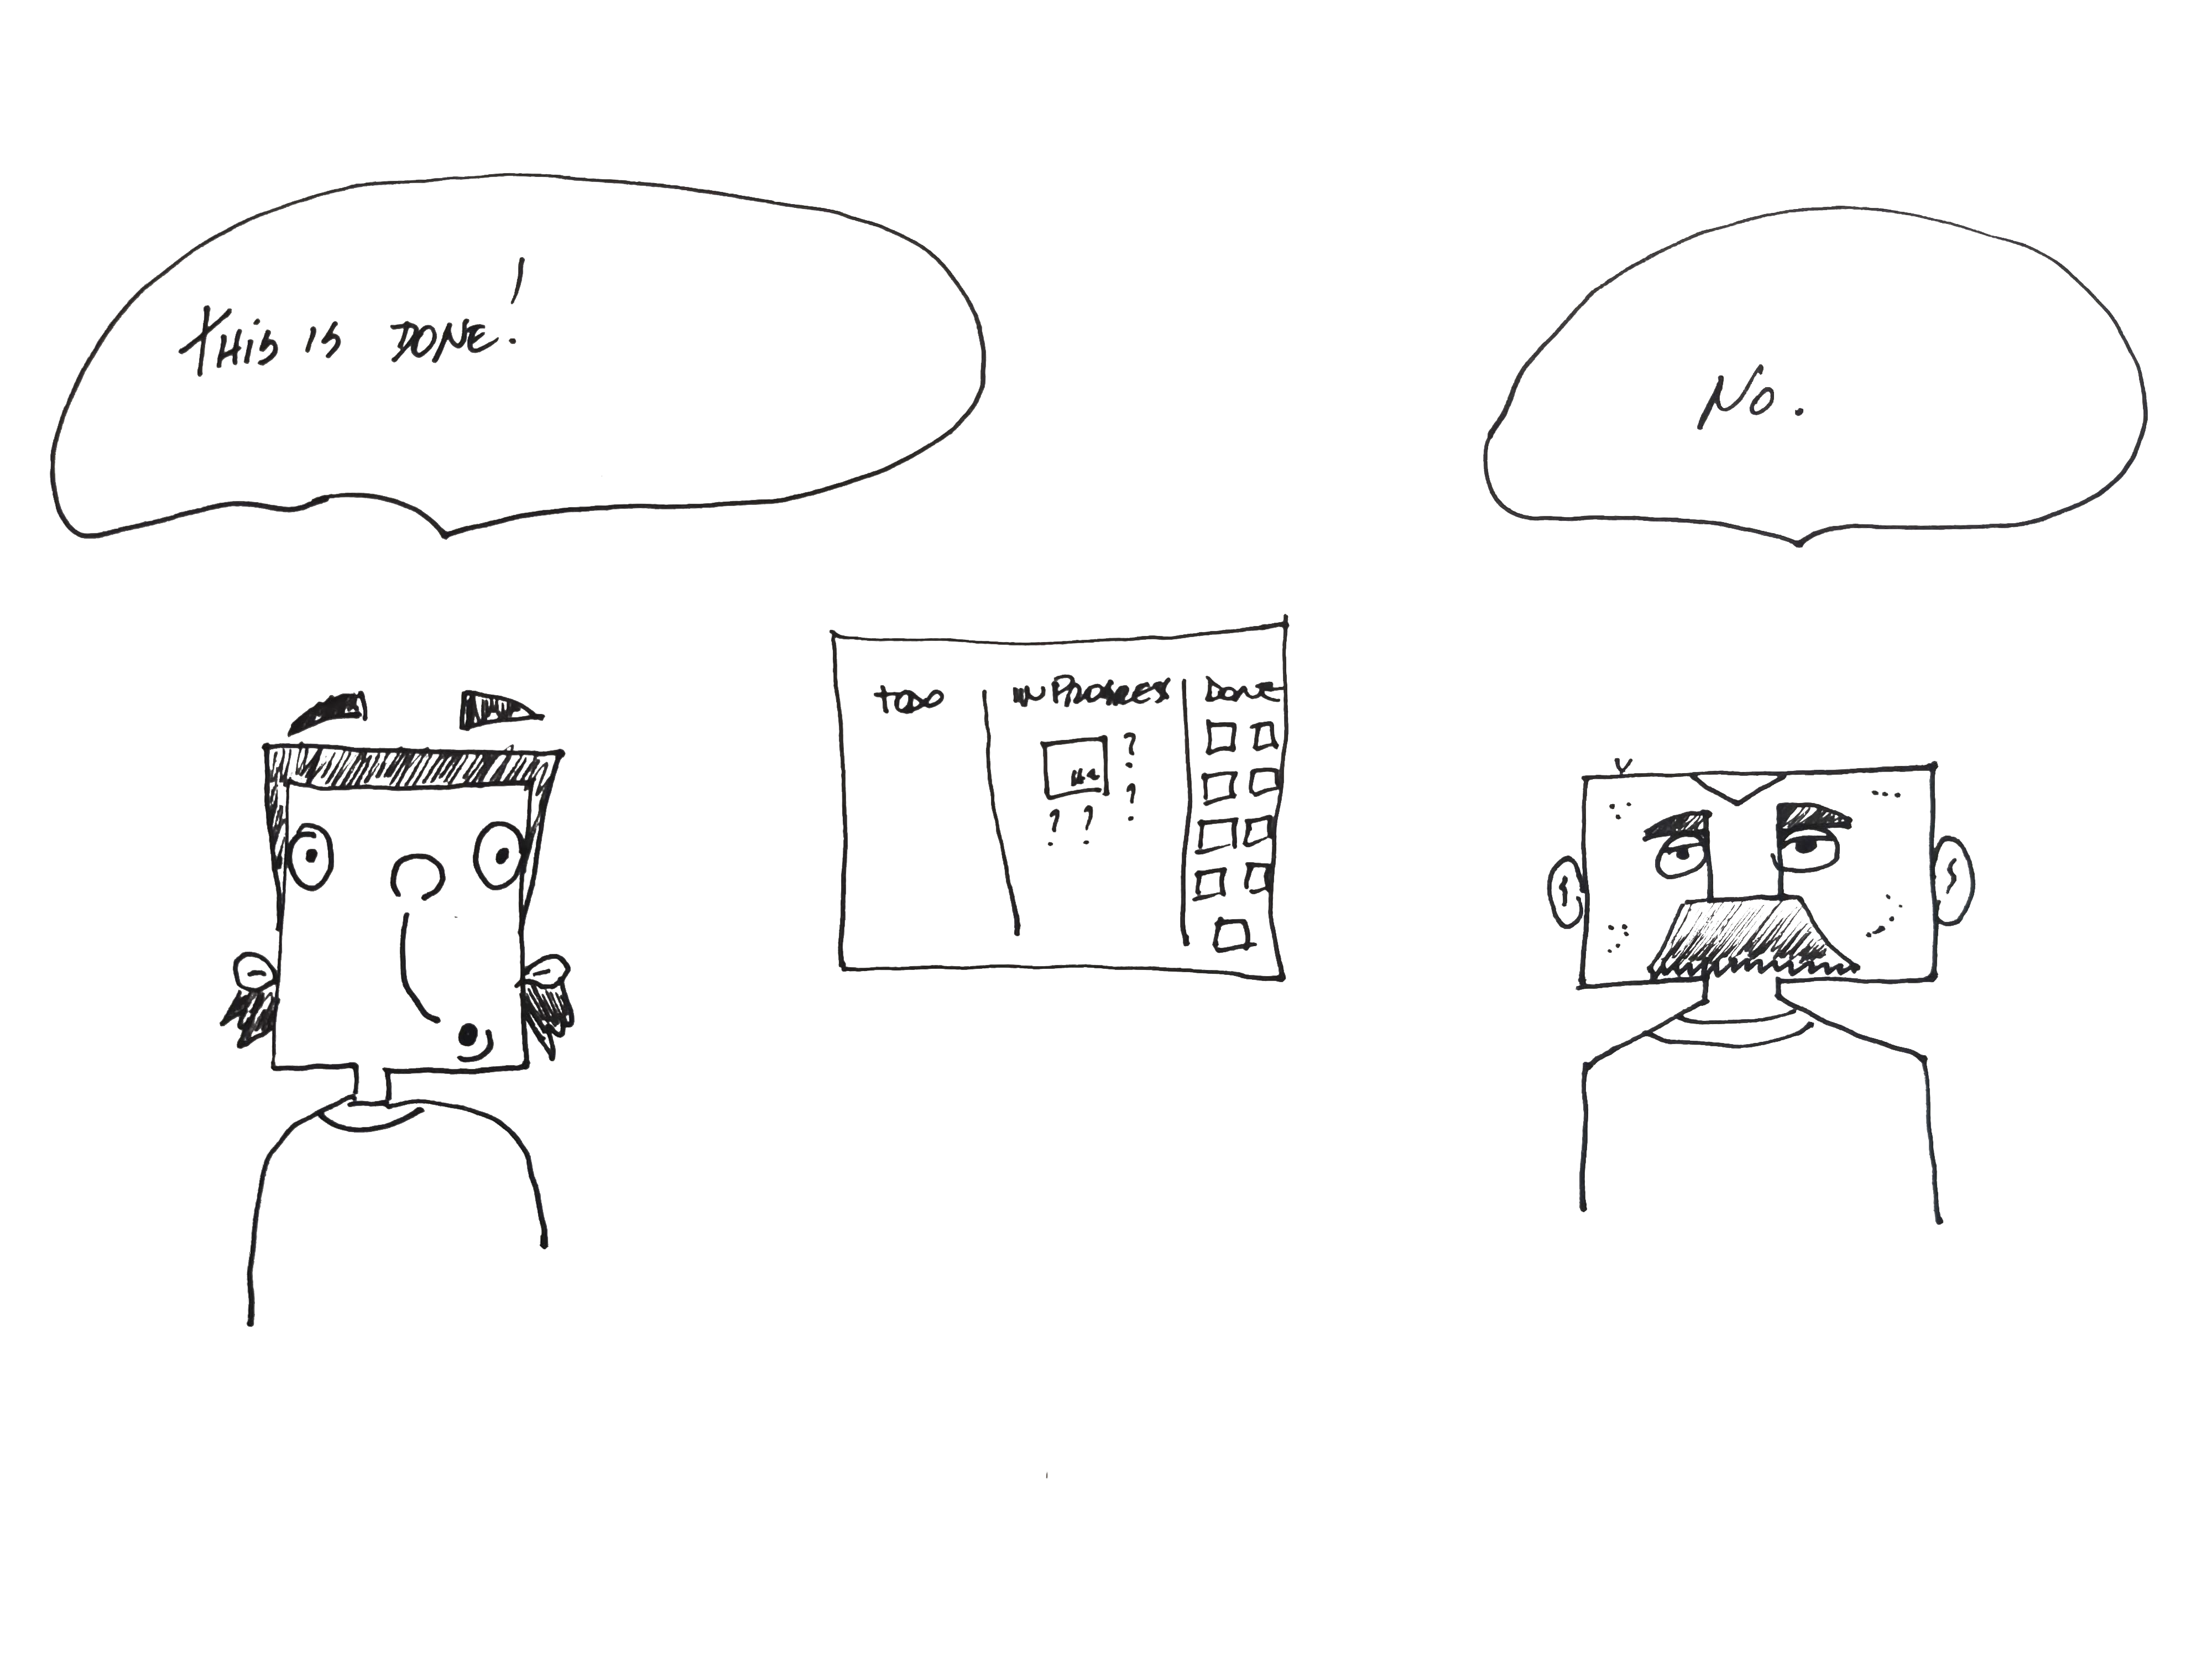 This is DONE!
No.
TODO
IN PROGRES
DONE
?
?
? ?